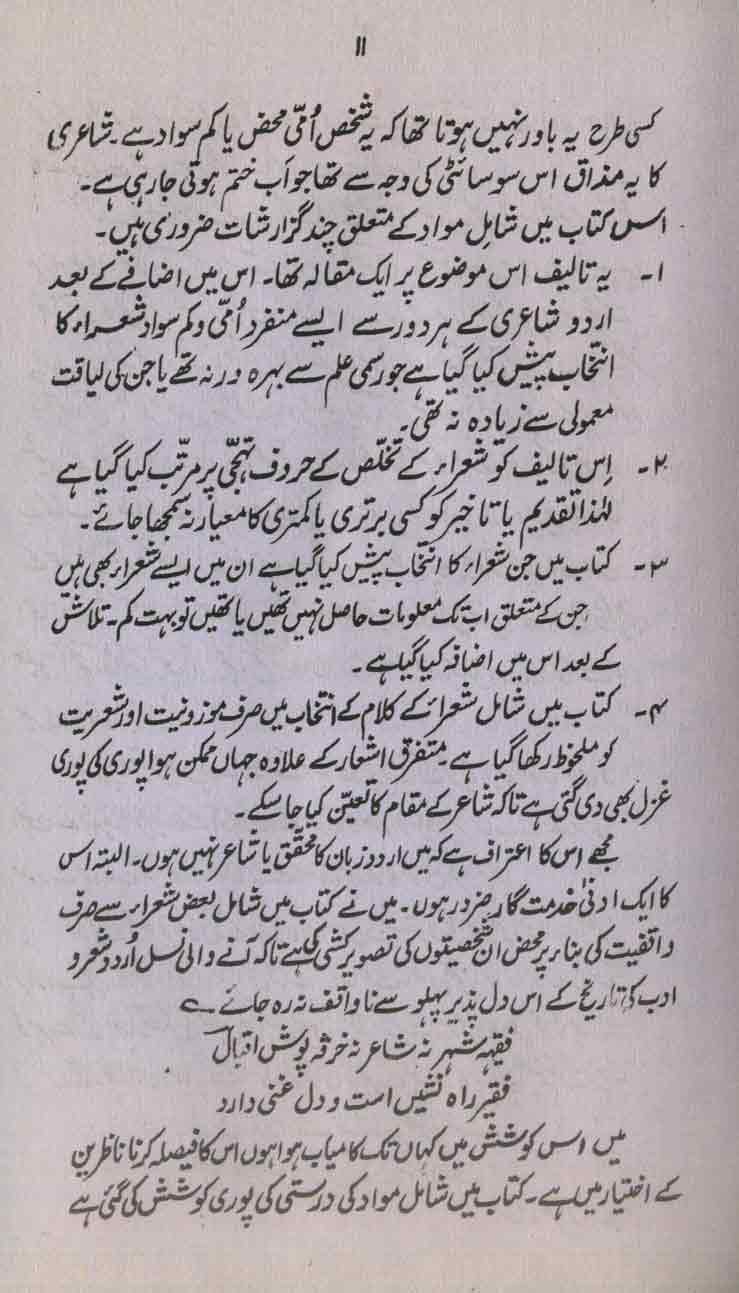 ۱۱
کسی طرح یہ باور نہیں ہوتا تھا کہ یہ شخص اُمّی محض یا کم سواد ہے۔ شاعری
کا یہ مذاق اس سوسائٹی کی وجہ سے تھا جو اَب ختم ہوتی جا رہی ہے۔
اس کتاب میں شامِل مواد کے متعلق چند گزارشات ضروری ہیں۔
۱۔ یہ تالیف اس موضوع پر ایک مقالہ تھا۔ اس میں اضافے کے بعد
اردو شاعری کے ہر دور سے ایسے منفرد اُمّی و کم سواد شعراء کا
انتخاب پیش کیا گیا ہے جو رسمی علم سے بہرہ ور نہ تھے یا جن کی لیاقت
معمولی سے زیادہ نہ تھی۔
۲۔ اِس تالیف کو شعراء کے تخلّص کے حروف تہجّی پر مرتّب کیا گیا ہے
لہٰذا تقدیم یا تاخیر کو کسی برتری یا کمتری کا معیار نہ سمجھا جائے۔
۳۔ کتاب میں جن شعراء کا انتخاب پیش کیا گیا ہے ان میں ایسے شعراء بھی ہیں
جن کے متعلق اب تک معلومات حاصل نہیں تھیں یا تھیں تو بہت کم۔ تلاش
کے بعد اس میں اضافہ کیا گیا ہے۔
۴۔ کتاب میں شامل شعراء کے کلام کے انتخاب میں صرف موزونیت اور شعریت
کو ملحوظ رکھا گیا ہے۔ متفرق اشعار کے علاوہ جہاں ممکن ہوا پوری کی پوری
غزل بھی دی گئی ہے تاکہ شاعر کے مقام کا تعیّن کیا جا سکے۔
مجھے اس کا اعتراف ہے کہ میں اردو زبان کا محقق یا شاعر نہیں ہوں۔ البتہ اس
کا ایک ادنیٰ خدمت گار ضرور ہوں۔ میں نے کتاب میں شامل بعض شعراء سے صرف
واقفیت کی بناء پر محض ان شخصیتوں کی تصویر کشی کی ہے تاکہ آنے والی نسل اُردو شعر و
ادب کی تاریخ کے اس دل پذیر پہلو سے ناواقف نہ رہ جائے ؎
فقیہہ شہر نہ شاعر نہ خرقہ پوش اقبالؔ
فقیر راہ نشیں است و دل غنی دارد
میں اس کوشش میں کہاں تک کامیاب ہوا ہوں اس کا فیصلہ کرنا ناظرین
کے اختیار میں ہے۔ کتاب میں شامل مواد کی درستی کی پوری کوشش کی گئی ہے